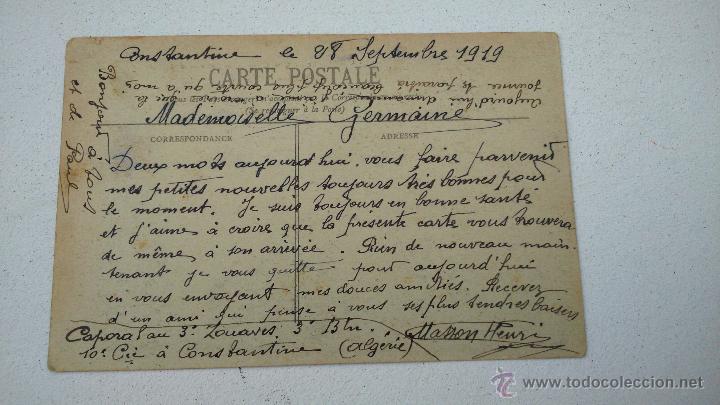 Constantine le 28 Septembre 1919
CARTE POSTALE
Aujourd'hui dimanche
journée te paraîtra plus courte qu'à moi
Mademoiselle Germaine
CORRESPONDANCE
ADRESSE
Deux mots aujourd'hui vous faire parvenir
mes petites nouvelles toujours très bonnes pour
le moment. Je suis toujours en bonne santé
et j'aime à croire que la présente carte vous trouvera
de même à son arrivée. Rien de nouveau main-
tenant je vous quitte pour aujourd'hui
en vous envoyant mes douces amitiés. Recevez
d'un ami qui pense à vous ses plus tendres baisers
Caporal au 3e Zouaves, 3e Btn.
Masson Henri
10e Cie à Constantine (Algérie)
Bonjour à tous
et à Paul
www.todocoleccion.net